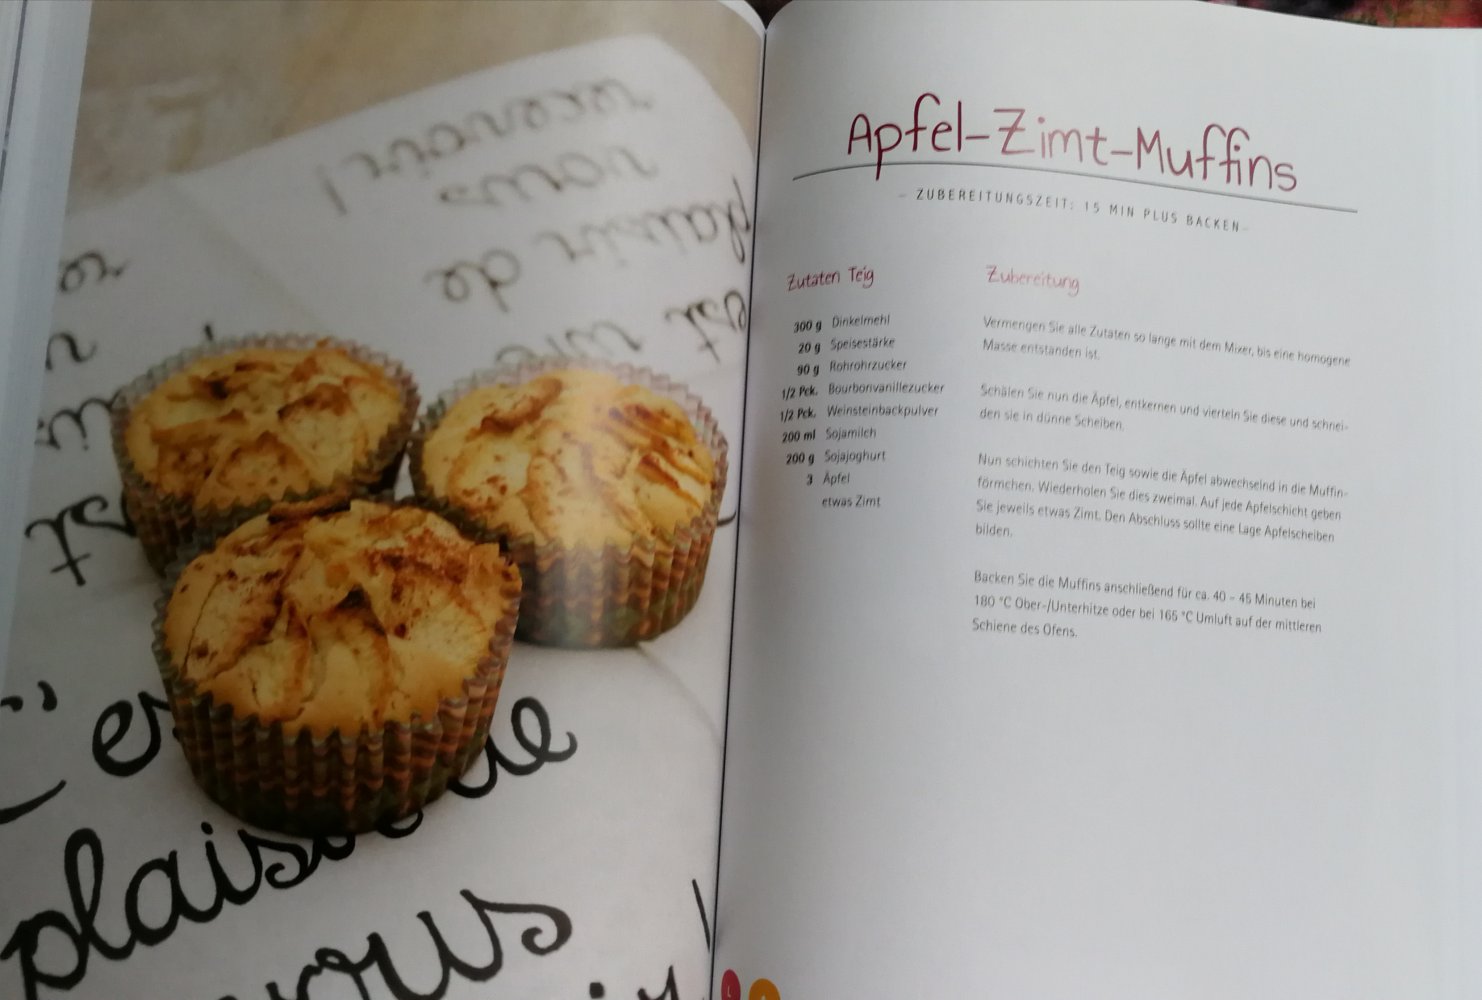 plaisir de
vous
Apfel-Zimt-Muffins
- ZUBEREITUNGSZEIT: 15 MIN PLUS BACKEN-
Zutaten Teig
300 g Dinkelmehl
20 g Speisestärke
90 g Rohrohrzucker
1/2 Pck. Bourbonvanillezucker
1/2 Pck. Weinsteinbackpulver
200 ml Sojamilch
200 g Sojajoghurt
3 Äpfel
etwas Zimt
Zubereitung
Vermengen Sie alle Zutaten so lange mit dem Mixer, bis eine homogene
Masse entstanden ist.
Schälen Sie nun die Äpfel, entkernen und vierteln Sie diese und schnei-
den sie in dünne Scheiben.
Nun schichten Sie den Teig sowie die Äpfel abwechselnd in die Muffin-
förmchen. Wiederholen Sie dies zweimal. Auf jede Apfelschicht geben
Sie jeweils etwas Zimt. Den Abschluss sollte eine Lage Apfelscheiben
bilden.
Backen Sie die Muffins anschließend für ca. 40 - 45 Minuten bei
180 °C Ober-/Unterhitze oder bei 165 °C Umluft auf der mittleren
Schiene des Ofens.